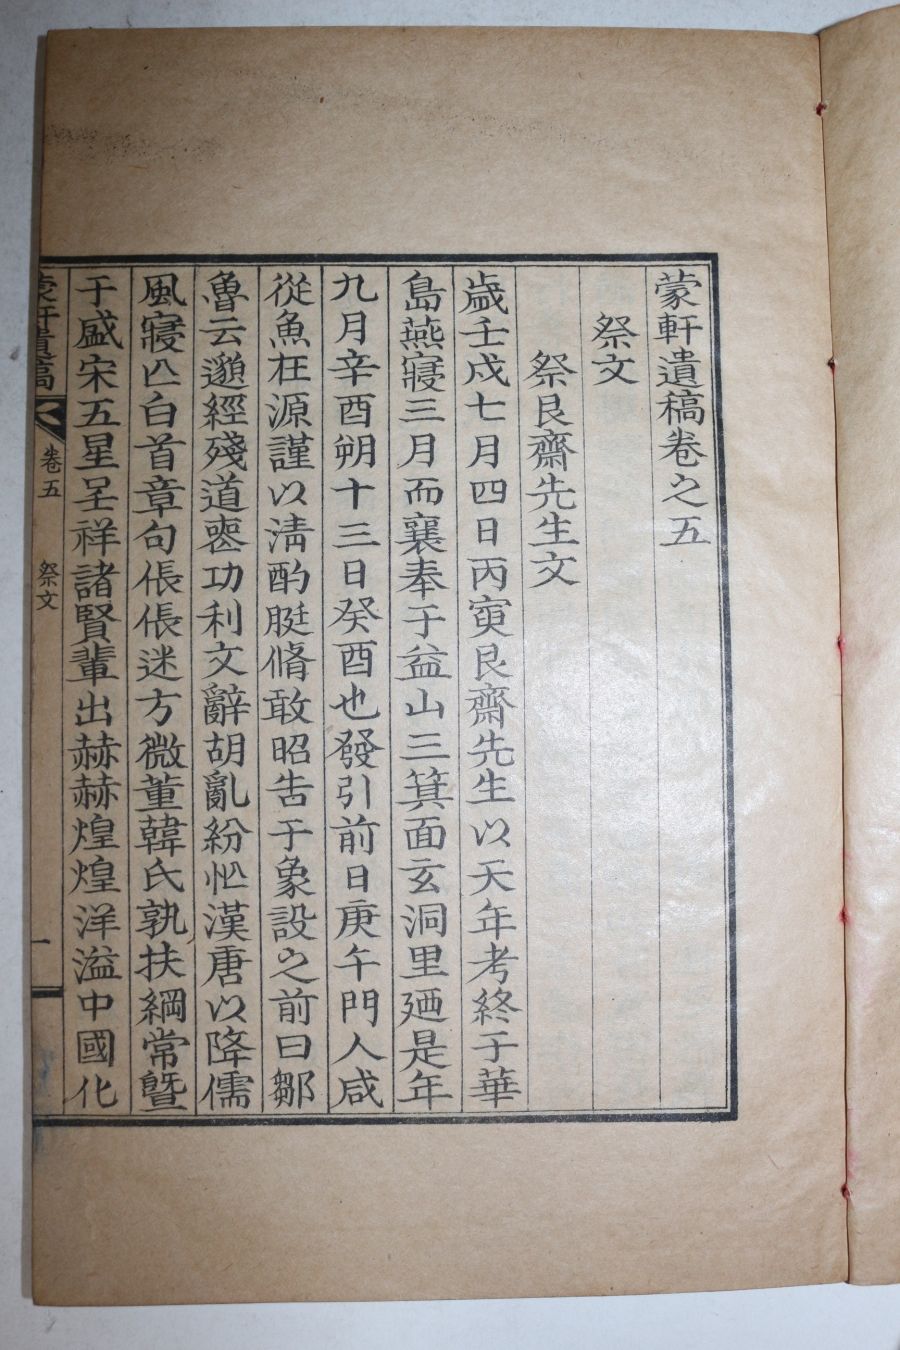 蒙軒遺稿卷之五
祭文
祭艮齋先生文
歲壬戌七月四日丙寅艮齋先生以天年考終于華
島燕寢三月而襄奉于益山三箕面玄洞里廼是年
九月辛酉朔十三日癸酉也發引前日庚午門人咸
從魚在源謹以淸酌脡脩敢昭告于象設之前曰鄒
魯云邈經殘道喪功利文辭胡亂紛忙漢唐以降儒
風寢亾白首章句倀倀迷方微董韓氏孰扶綱常曁
于盛宋五星呈祥諸賢輩出赫赫煌煌洋溢中國化
蒙軒遺稿 卷五 祭文 一